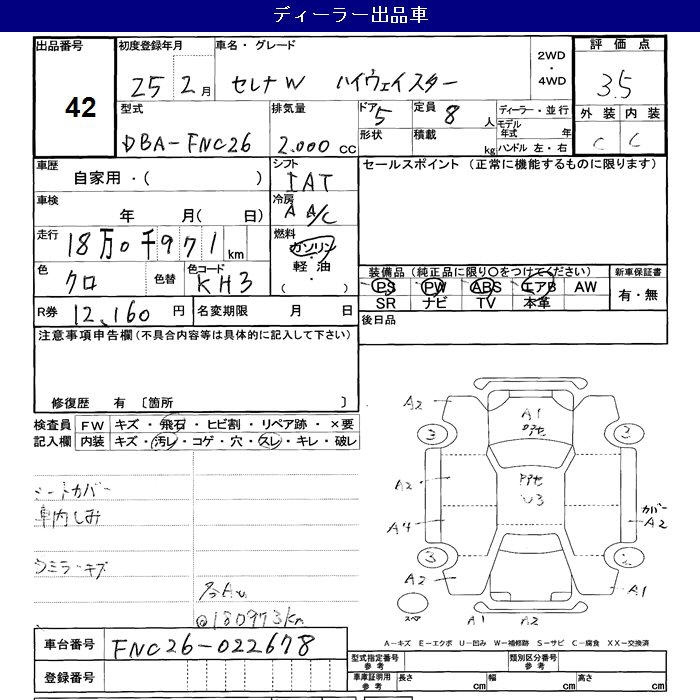 ディーラー出品車
出品番号 初度登録年月 車名・グレード 2WD ・ 4WD 評価点
42 25 2月 セレナW ハイウェイスター 3.5
型式 排気量 ドア 定員 ディーラー・並行 外装 内装
DBA-FNC26 2.000 cc 5 8人 モデル年式 年 C C
形状 積載 kg ハンドル 左・右
車歴 シフト セールスポイント (正常に機能するものに限ります)
自家用・( ) IAT
車検 冷房
年 月( 日) A A/C
走行 燃料
18万0千971km ガソリン・軽油・( )
色 色替 色コード 装備品(純正品に限り○をつけてください) 新車保証書
クロ KH3 PS PW ABS エアB AW 有・無
SR ナビ TV 本革
R券 12,160円 名変期限 月 日 後日品
注意事項申告欄(不具合内容等は具体的に記入して下さい)
修復歴 有 〔箇所 〕
検査員 FW キズ・飛石・ヒビ割・リペア跡・×要
記入欄 内装 キズ・汚レ・コゲ・穴・スレ・キレ・破レ
シートカバー
車内しみ
ウミラーキズ
@180973km
A2 A1
3 2
A2 U3
A4 カバー A2
3
A2 A1
スペア A1 A2
A-キズ E-エクボ U-凹み W-補修跡 S-サビ C-腐食 XX-交換済
車台番号 FNC26-022678
型式指定番号 参考 類別区分番号 参考
登録番号
車庫証明用 参考 長さ cm 幅 cm 高さ cm